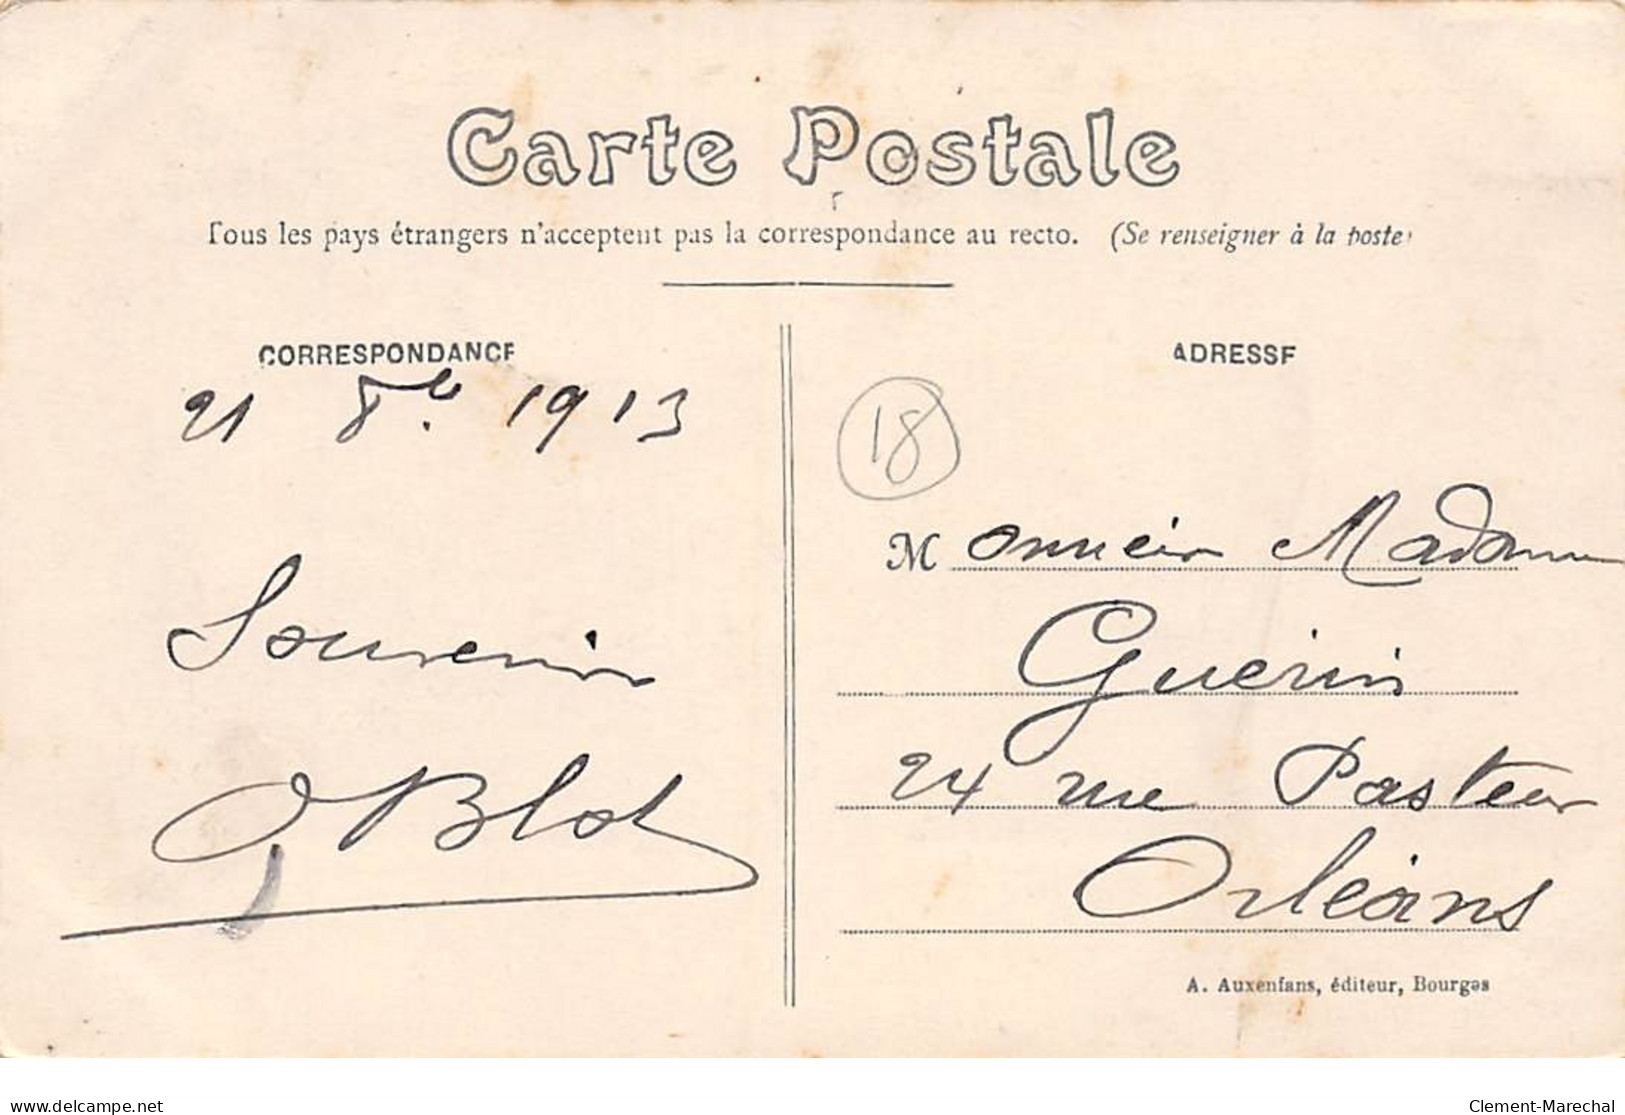 Carte Postale
Tous les pays étrangers n'acceptent pas la correspondance au recto. (Se renseigner à la poste)
CORRESPONDANCE
21 8bre. 1913
Souvenir
OBlot
ADRESSE
18
Monsieur Madame
Guerin
24 rue Pasteur
Orléans
A. Auxenfans, éditeur, Bourges
delcampe.net
Clement-Marechal